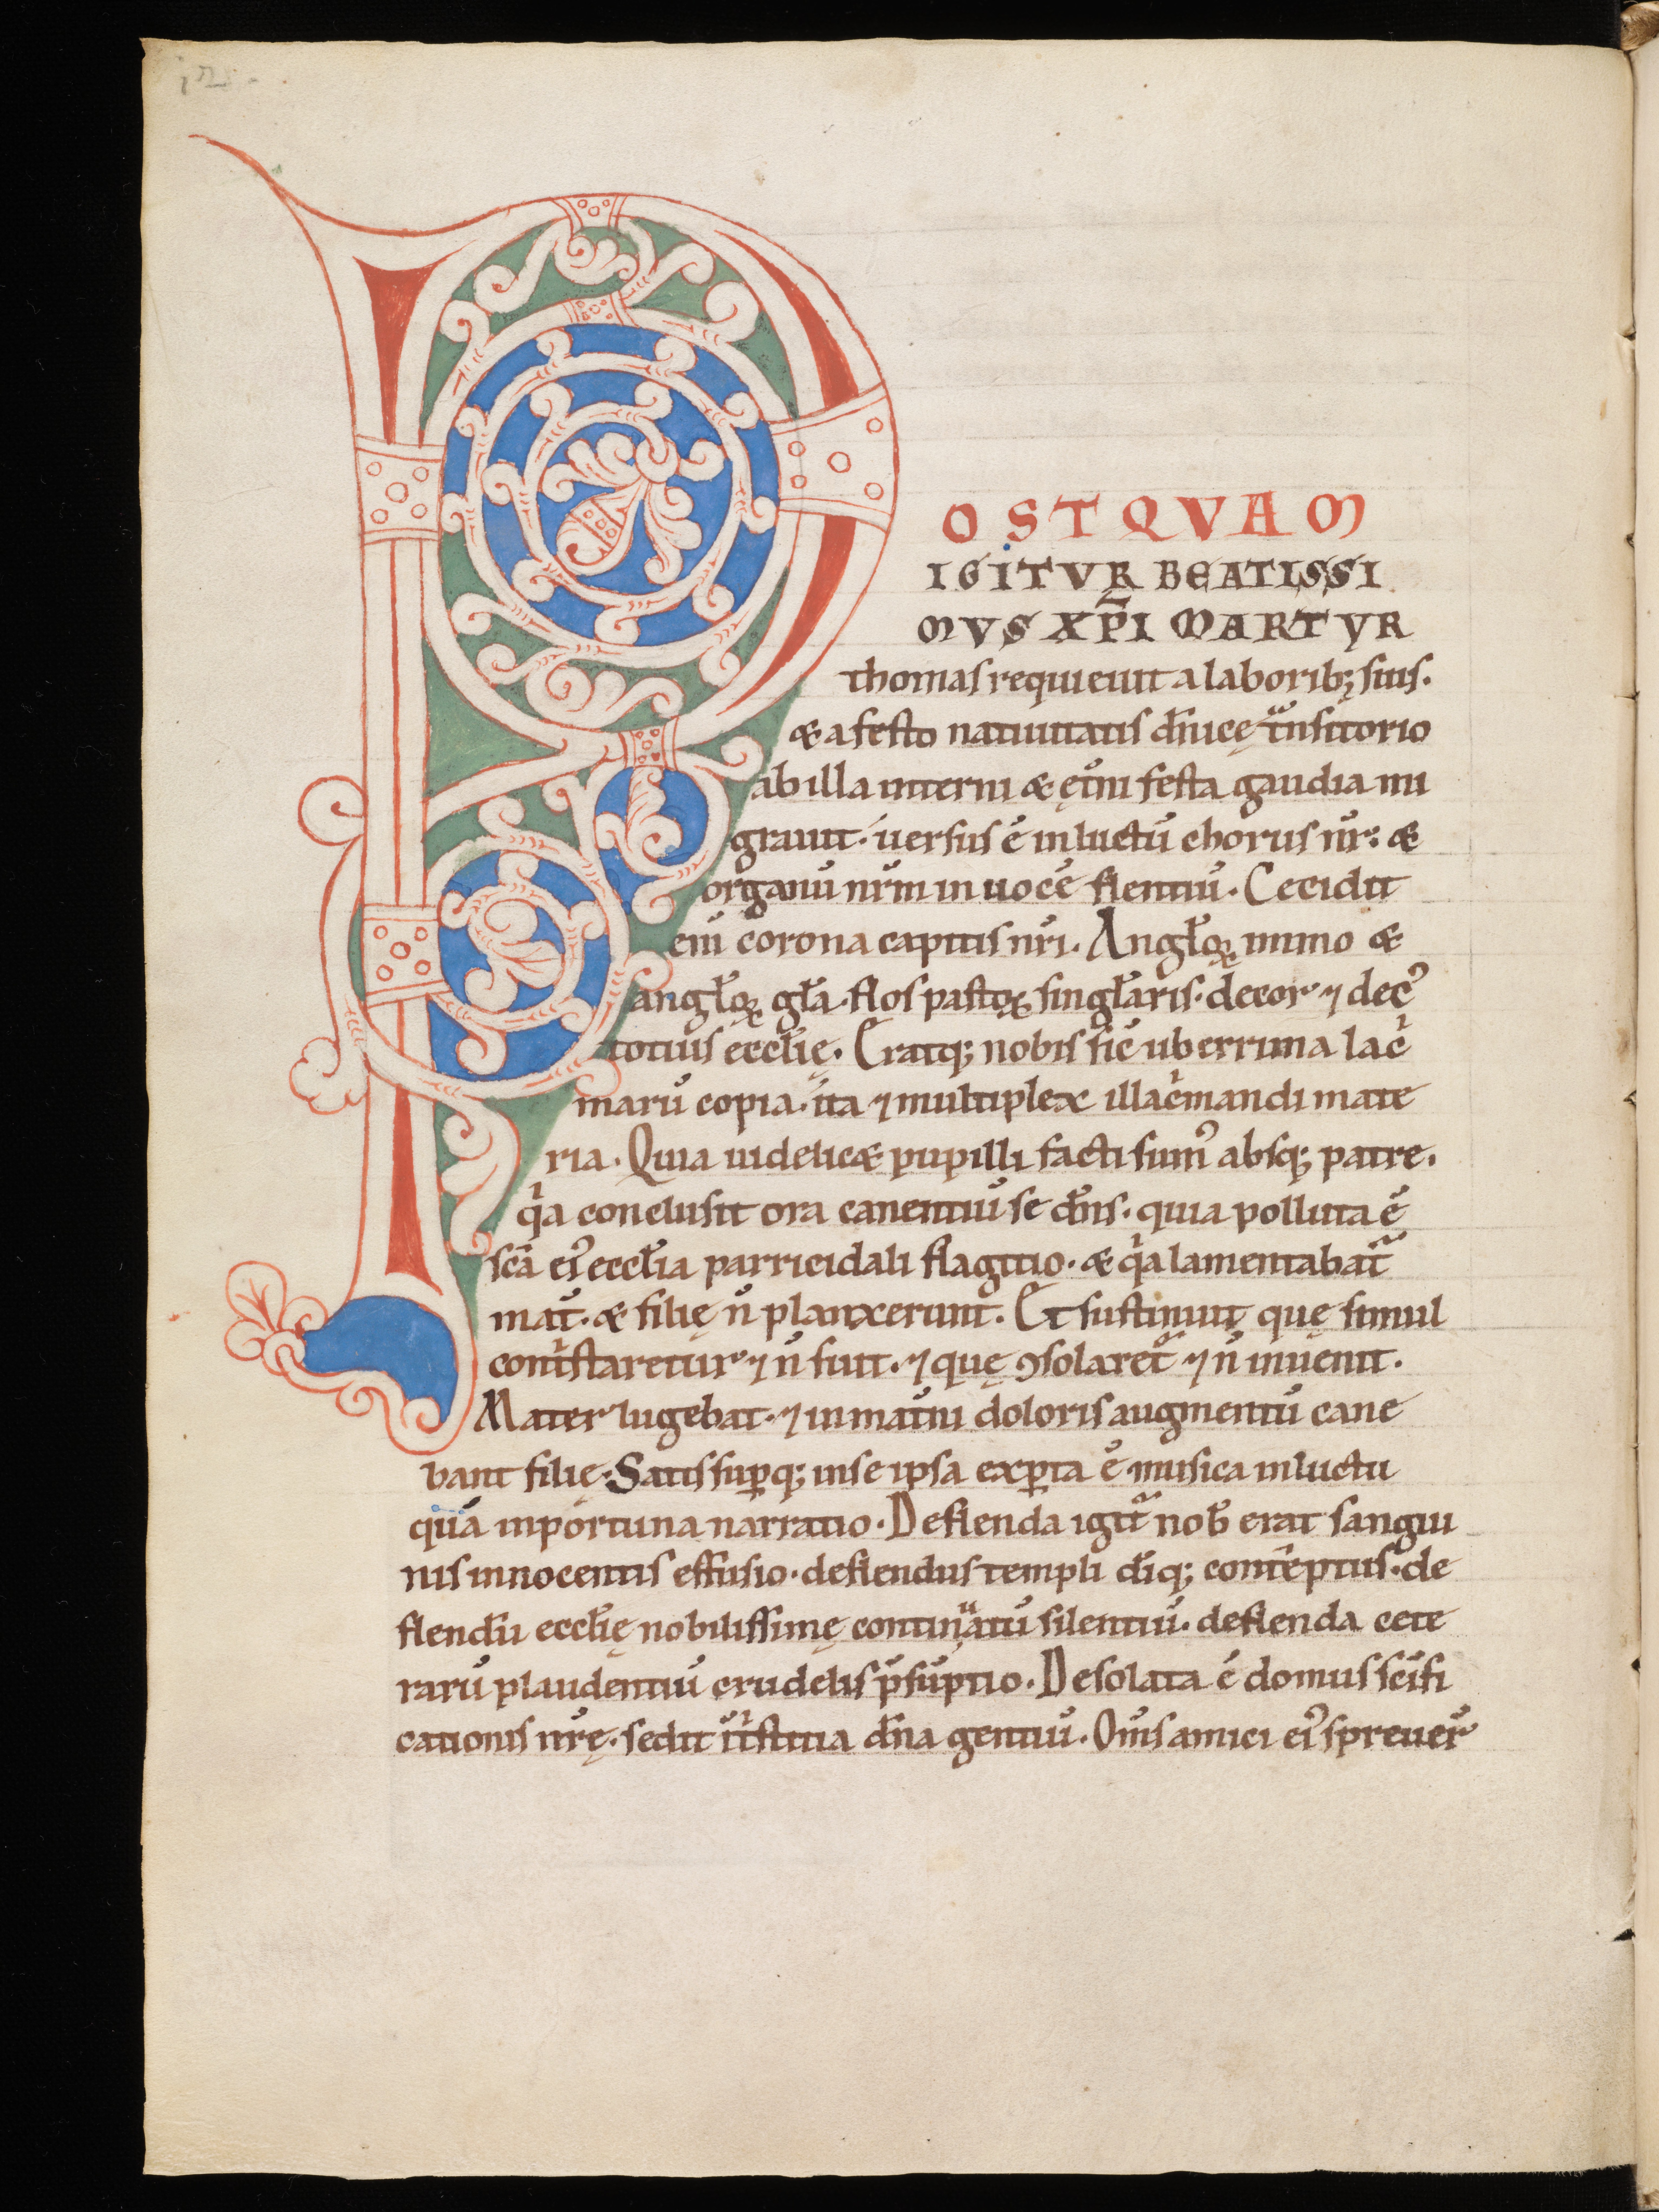 POSTQVAM
IGITVR BEATISSI
MVS XP̅I MARTYR
thomas requieuit a laborib; suis.
& a festo natiuitatis dn̄icę tͣnsitorio
ab illa interni & ęt̄ni festa gaudia mi
grauit. uersus ē in luctū chorus nr̄: &
organū nr̄m in uocē flentiū. Cecidit
eni̅ corona capitis nr̄i. Angl̄oꝝ immo &
angl̄oꝝ gl̄a. flos pastoꝝ singl̄aris. decor ⁊ decꝰ
totius eccl̄ię. Eratq; nobis sic̄ uberrima lacͥ
marū copia. ita ⁊ multiplex illacͥmandi mate
ria. Quia uidelic& pupilli facti sumꝰ absq; patre.
qͥa conclusit ora canentiū se dn̄s. quia polluta ē
sc̄a eiꝰ eccl̄ia parricidali flagitio. & qͥa lamentabat᷑
mat̄. & filię n̄ planxerunt. Et sustinuit, quę simul
contͥstaretur ⁊ n̄ fuit. ⁊ quę ꝯsolaret᷑ ⁊ n̄ inuenit.
Mater lugebat. ⁊ in mat̄ni doloris augmentū cane
bant filię. Satis suꝑq; in se ipsa exꝑta ē musica in luctu
quā inportuna narratio. Deflenda igit᷑ nob̄ erat sangui
nis innocentis effusio. deflendus templi di̅q; contēptus. de
flendū eccl̄ię nobilissimę continuatū silentiū. deflenda cete
rarū plaudentiū crudelis p̄sūptio. Desolata ē domus sc̄ifi
cationis nr̄ę. sedit in tͥstitia dn̄a gentiū. Om̄s amici eiꝰ spreuer̄